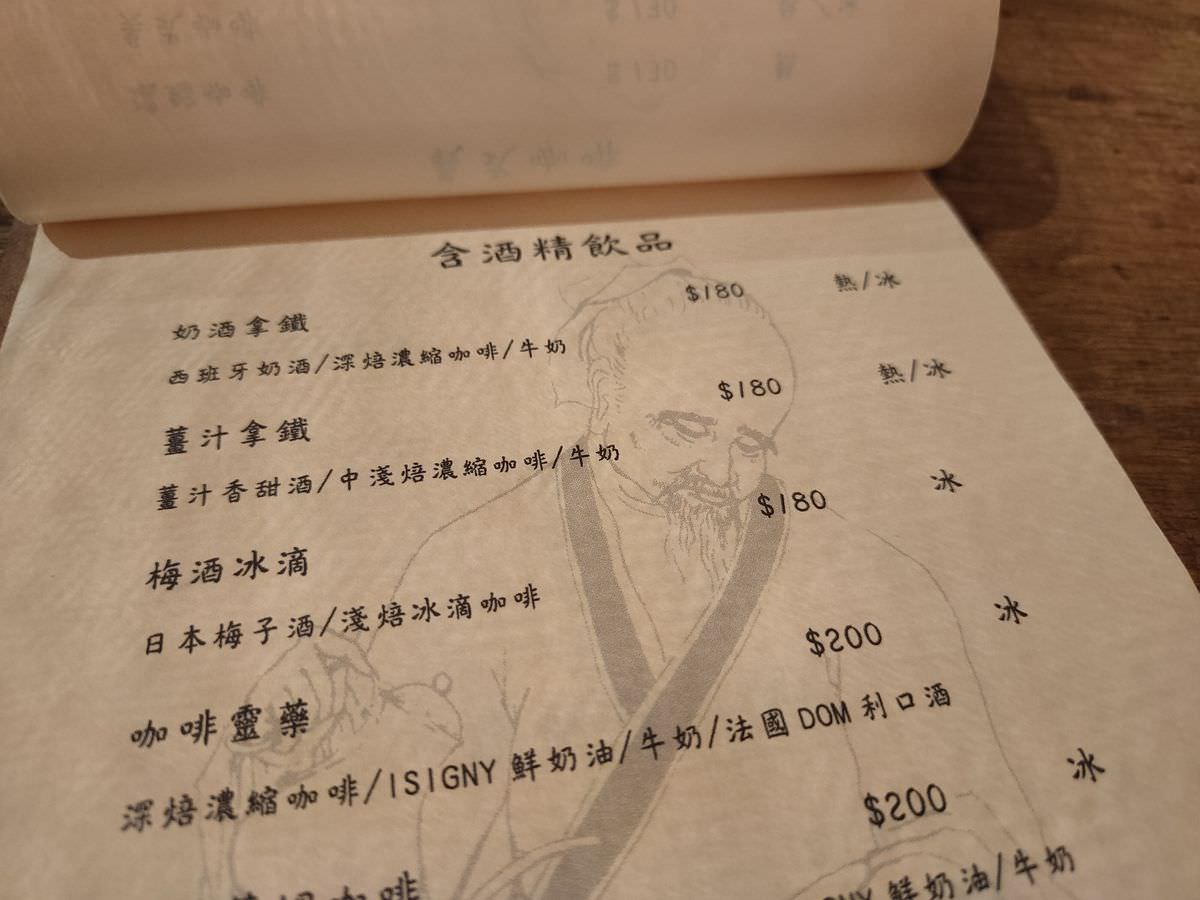 含酒精飲品
奶酒拿鐵 $180 熱/冰
西班牙奶酒/深焙濃縮咖啡/牛奶
薑汁拿鐵 $180 熱/冰
薑汁香甜酒/中淺焙濃縮咖啡/牛奶
梅酒冰滴 $180 冰
日本梅子酒/淺焙冰滴咖啡
咖啡靈藥 $200 冰
深焙濃縮咖啡/ISIGNY 鮮奶油/牛奶/法國DOM利口酒
咖啡 $200 冰
鮮奶油/牛奶